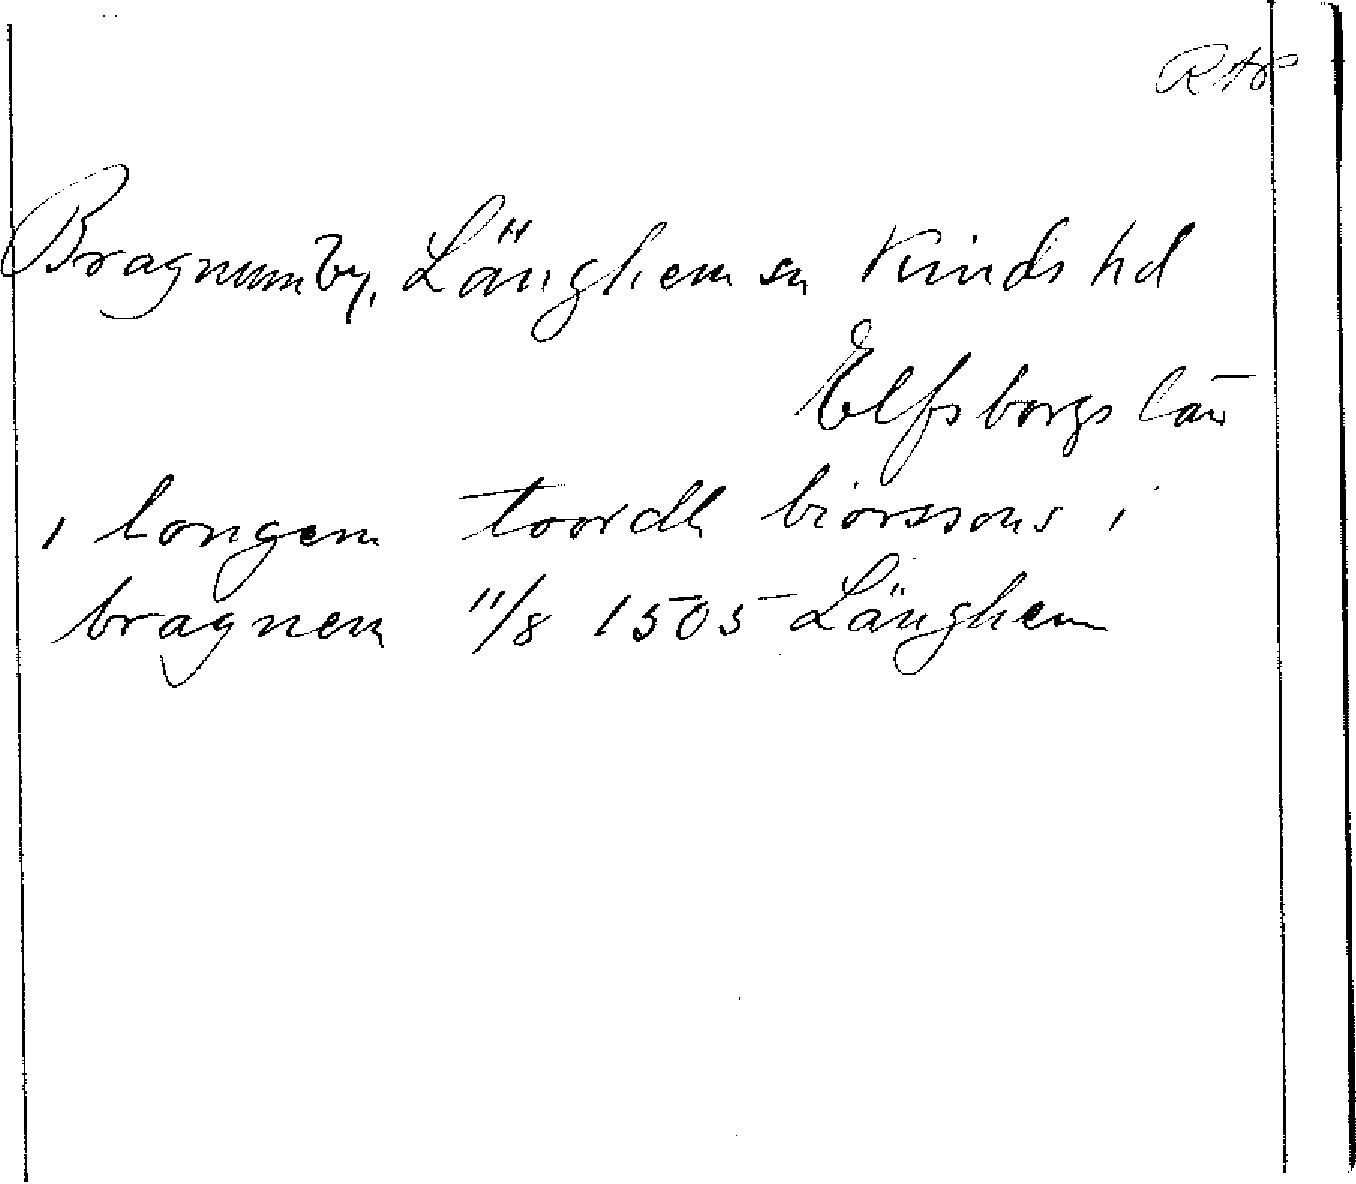 RAp
Bragnum by, Länghem sn Kinds hd
Elfsborgs län
i longem toordh biorssons i
bragnem 11/8 1505 Länghem